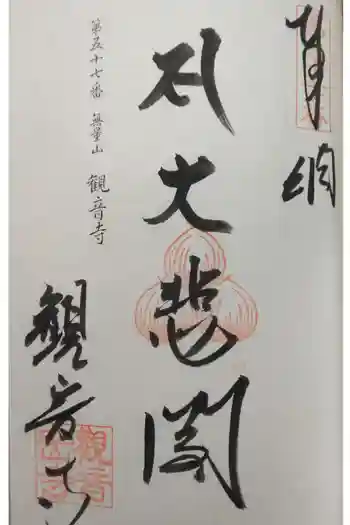 奉納
大悲閣
第五十七番 無量山 観音寺
観音寺
観音